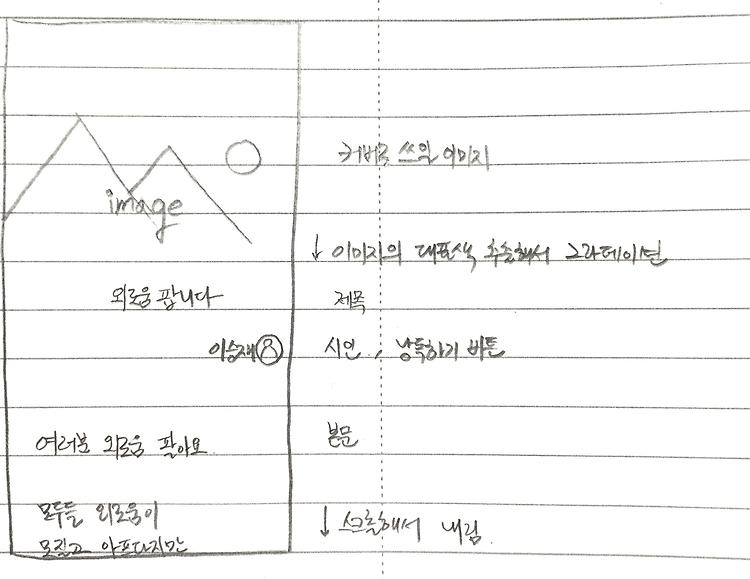 커버로 쓰일 이미지
image
↓ 이미지의 대표색 추출해서 그라데이션
외로움 팝니다 제목
이승재 시인, 낭독하기 버튼
여러분 외로움 팔아요 본문
모두들 외로움이
↓ 스크롤해서 내림
아프다지만